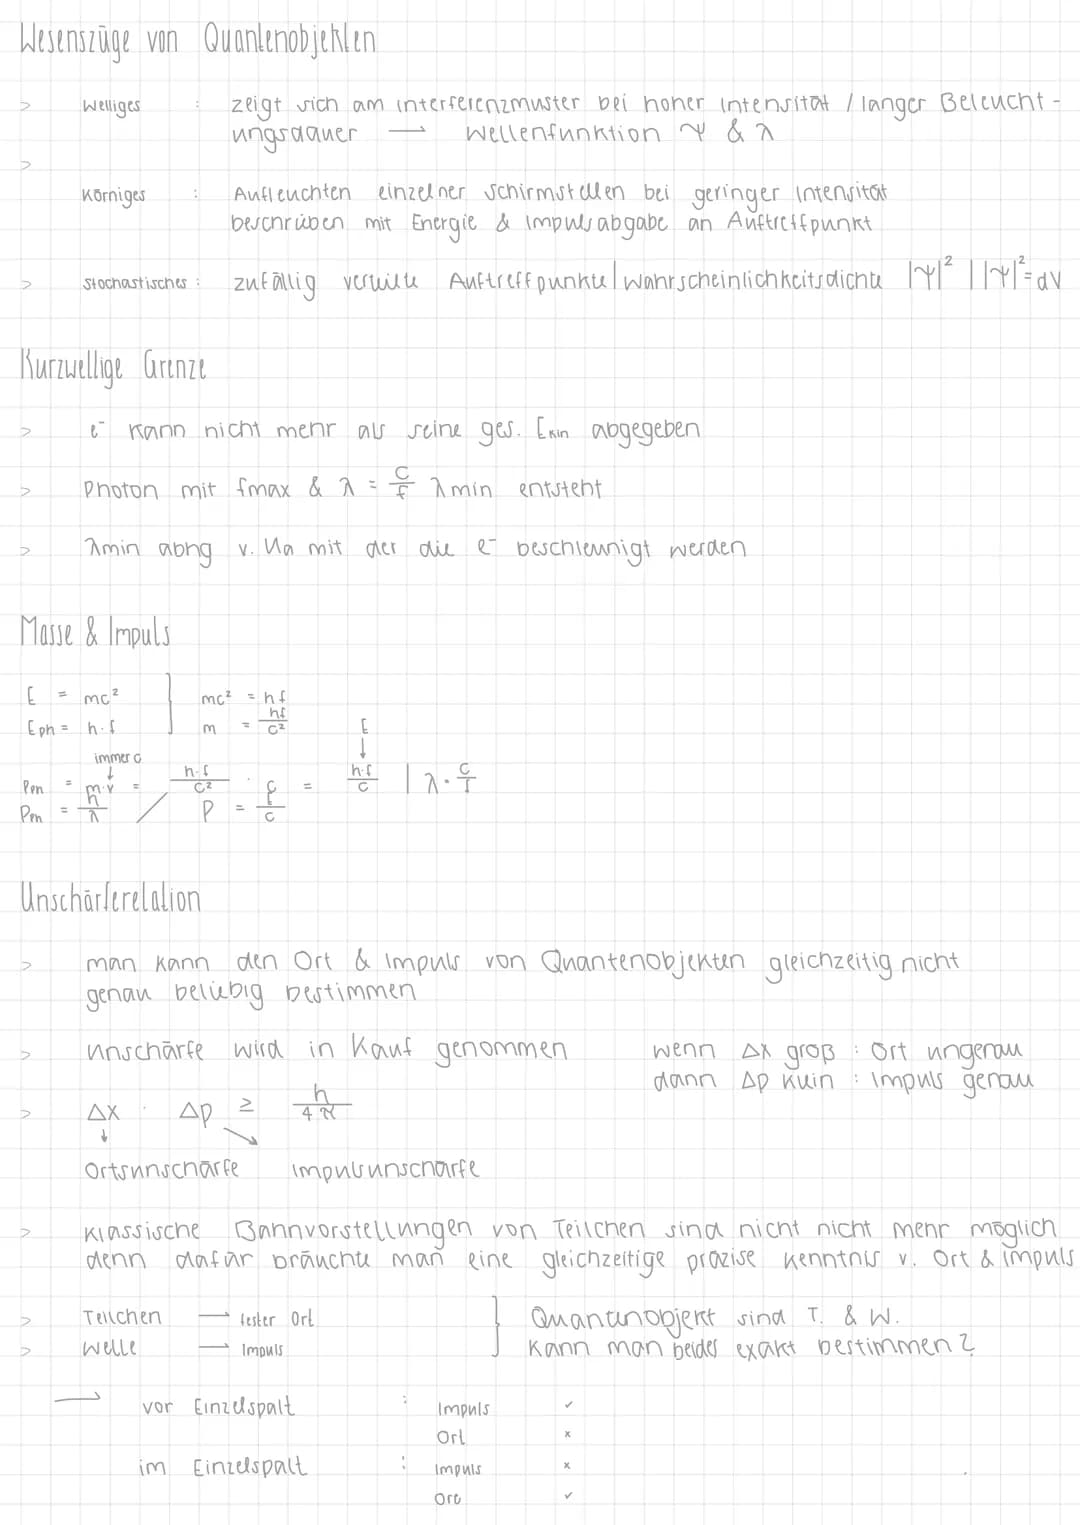 Wesenszüge von Quantenobjekten
> Welliges : zeigt sich am interferenzmuster bei hoher Intensität / langer Beleucht-
ungsdauer → Wellenfunktion Ψ & λ
>
Körniges : Aufleuchten einzelner Schirmstellen bei geringer Intensität
beschrieben mit Energie & Impulsabgabe an Auftreffpunkt
> Stochastisches : zufällig verteilte Auftreffpunkte | Wahrscheinlichkeitsdichte |Ψ|² | |Ψ|² = dV
Kurzwellige Grenze
> e⁻ kann nicht mehr als seine ges. Ekin abgegeben
> Photon mit fmax & λ = c/f λmin entsteht
> λmin abhg v. Ua mit der die e⁻ beschleunigt werden
Masse & Impuls
E = mc² } mc² = hf
Eph = h·f m = hf/c² E
immer c ↓ ↓
Pph = m·v = h·f/c² · c = h·f/c | λ · c/f
Pph = h/λ / P = E/c
Unschärferelation
> man kann den Ort & Impuls von Quantenobjekten gleichzeitig nicht
genau beliebig bestimmen
> Unschärfe wird in Kauf genommen wenn Δx groß : Ort ungenau
dann Δp klein : Impuls genau
> Δx · Δp ≥ h/4π
↓ ↘
Ortsunschärfe Impulsunschärfe
> Klassische Bahnvorstellungen von Teilchen sind nicht nicht mehr möglich
denn dafür bräuchte man eine gleichzeitige präzise Kenntnis v. Ort & impuls
> Teilchen → fester Ort } Quantenobjekt sind T. & W.
> Welle → Impuls Kann man beides exakt bestimmen?
→ vor Einzelspalt : Impuls ✓
Ort x
im Einzelspalt : Impuls x
Ort ✓